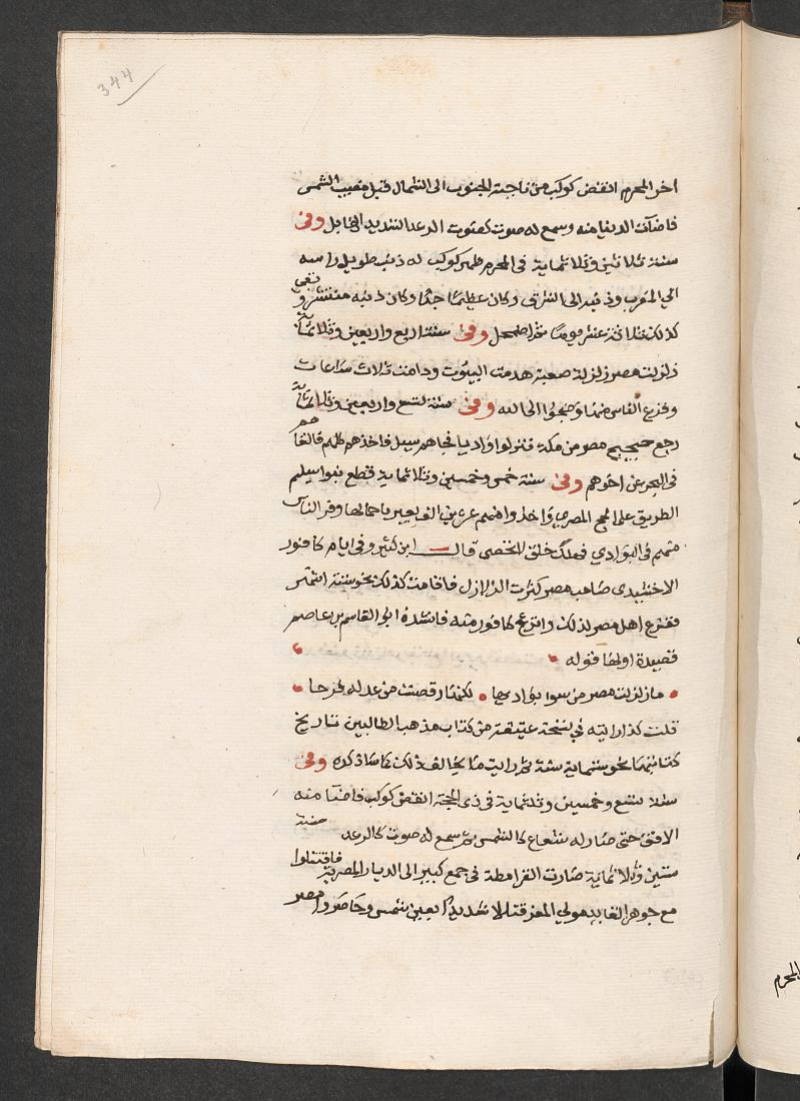 344
اخر المحرم انقض كوكب من ناحية الجنوب الى الشمال قبل مغيب الشمس
فاضآت الدنيا منه وسمع له صوت كصوت الرعد الشديد الهايل وفى
سنة ثلاثين وثلاثماية فى المحرم ظهر كوكب له ذنب طويل راسه
الى المغرب وذنبه الى الشرق وكان عظيما جدا وكان ذنبه منتشر وبقى
كذلك ثلاثة عشر يوما ثم اضمحل وفى سنة اربع واربعين وثلاثماية
زلزلت مصر زلزلة صعبة هدمت البيوت ودامت ثلاث ساعات
وفزع الناس منها وضجوا الى الله وفى سنة تسع واربعين وثلاثماية
رجع حجيج مصر من مكة فنزلوا واديا فجاهم سيل فاخذهم كلهم فالقاهم
فى البحر عن اخرهم وفى سنة خمس وخمسين وثلاثماية قطع بنو سليم
الطريق على الحج المصرى واخذوا منهم عشرين الف بعير باحمالها وفر الناس
منهم فى البوادي فهلك خلق لا تحصى قال ابن كثير وفى ايام كافور
الاخشيدى صاحب مصر كثرت الزلازل فاقامت كذلك نحو ستة اشهر
ففزع اهل مصر لذلك وانزعج كافور منه فانشده ابو القاسم بن عاصم
قصيدة اولها قوله
ما زلزلت مصر من سوا يراد بها لكنها رقصت من عدله فرحا
قلت كذا رايته في نسخة عتيقة من كتاب مذهب الطالبين تاريخ
كتابتها نحو ستماية سنة ثم رايت ما يخالف ذلك كما ساذكره وفى
سنة تسع وخمسين وثلثماية فى ذى الحجة انقض كوكب فاضا منه
الافق حتى صار له شعاع كالشمس ثم سمع له صوت كالرعد سنة
ستين وثلاثماية صارت القرامطة فى جمع كبير الى الديار المصرية فاقتتلوا
مع جوهر القايد مولى المعز قتالا شديدا بعين شمس وحاصروا مصر
المحرم